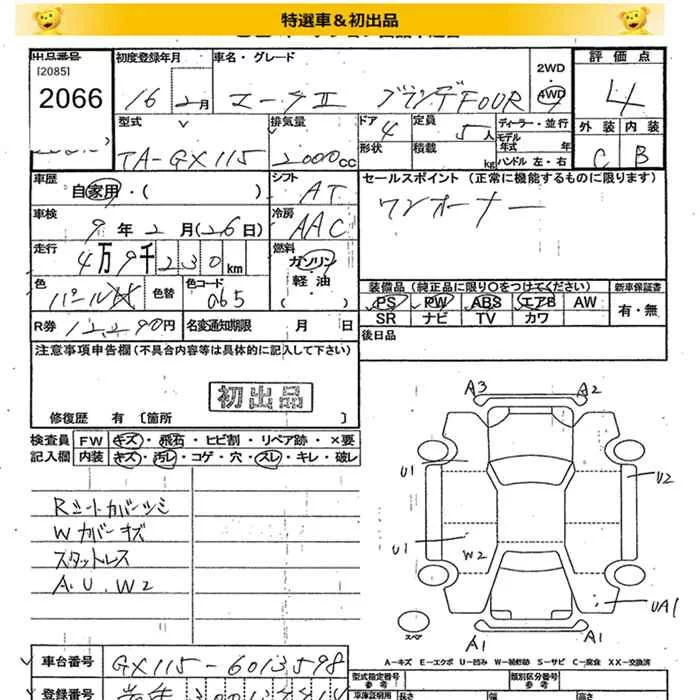 特選車＆初出品
出品番号 初度登録年月 車名・グレード 2WD 4WD 評価点
[2085]
2066
16 2月 マークII グランデFOUR 4
型式 排気量 ドア 定員 ディーラー・並行
4 5人 モデル年式 年 外装 内装
TA-GX115 2000cc 形状 積載 kg ハンドル 左・右 C B
車歴 シフト セールスポイント (正常に機能するものに限ります)
自家用・( ) AT ワンオーナー
車検 冷房
9年2月(26日) AAC
走行 燃料
4万9千230km ガソリン・軽油
色 色替 色コード 装備品 (純正品に限り○をつけてください) 新車保証書
パール 065 PS PW ABS エアB AW 有・無
( ) SR ナビ TV カワ
R券 12,290円 名変通知期限 月 日 後日品
注意事項申告欄 (不具合内容等は具体的に記入して下さい)
初出品
修復歴 有 〔箇所 〕
検査員 FW キズ・飛石・ヒビ割・リペア跡・×要
記入欄 内装 キズ・汚レ・コゲ・穴・スレ・キレ・破レ
Rシートカバーツミ
Wカバーキズ
スタットレス
A.U.W2
A3 A2
U1 U2
U1 W2
UA1
スペア A1 A1
A－キズ E－エクボ U－凹み W－補修跡 S－サビ C－腐食 XX－交換済
車台番号 GX115-6013598
型式指定番号 参考 類別区分番号 参考
登録番号
長さ 幅 高さ